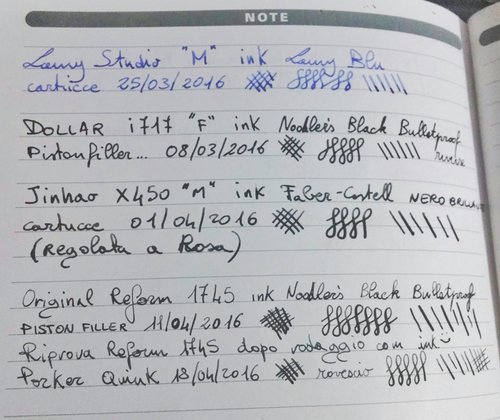 NOTE
Lamy Studio "M" ink Lamy Blu
cartucce 25/03/2016
DOLLAR i717 "F" ink Noodler's Black Bulletproof
Pistonfiller... 08/03/2016
Jinhao X450 "M" ink Faber-Castell NERO
cartucce 01/04/2016
(Regolata a Rosa)
Original Reform 1745 ink Noodler's Black Bulletproof
PISTON FILLER 11/04/2016
Riprova Reform 1745 dopo rodaggio com ink
Porker Quink 18/04/2016 rovescio